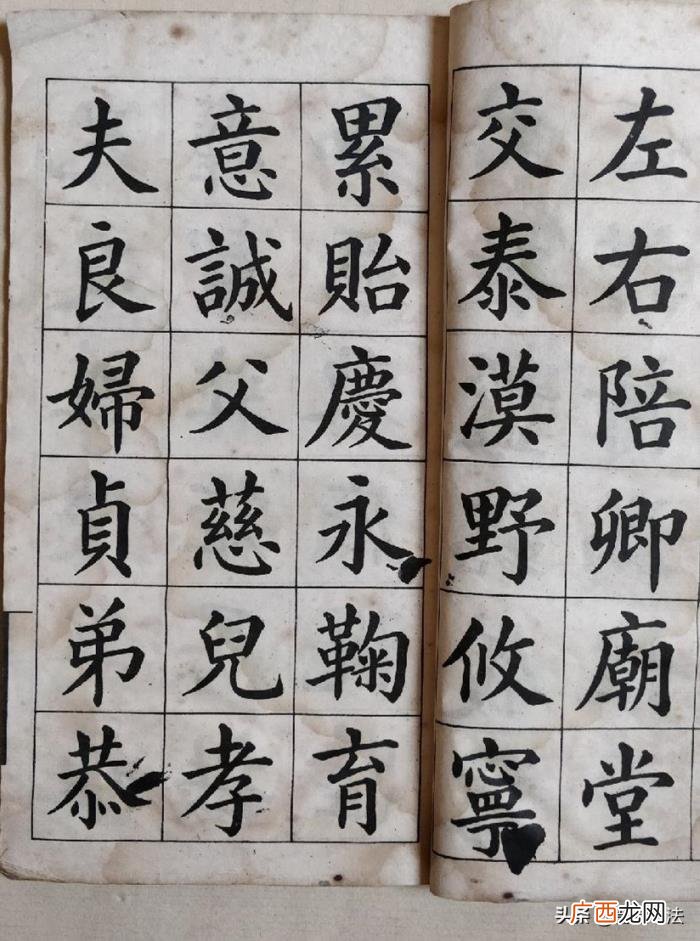 左右陪卿廟堂
交泰漠野攸寧
累貽慶永鞠育
意誠父慈兒孝
夫良婦貞弟恭
广西龙网
头条
法